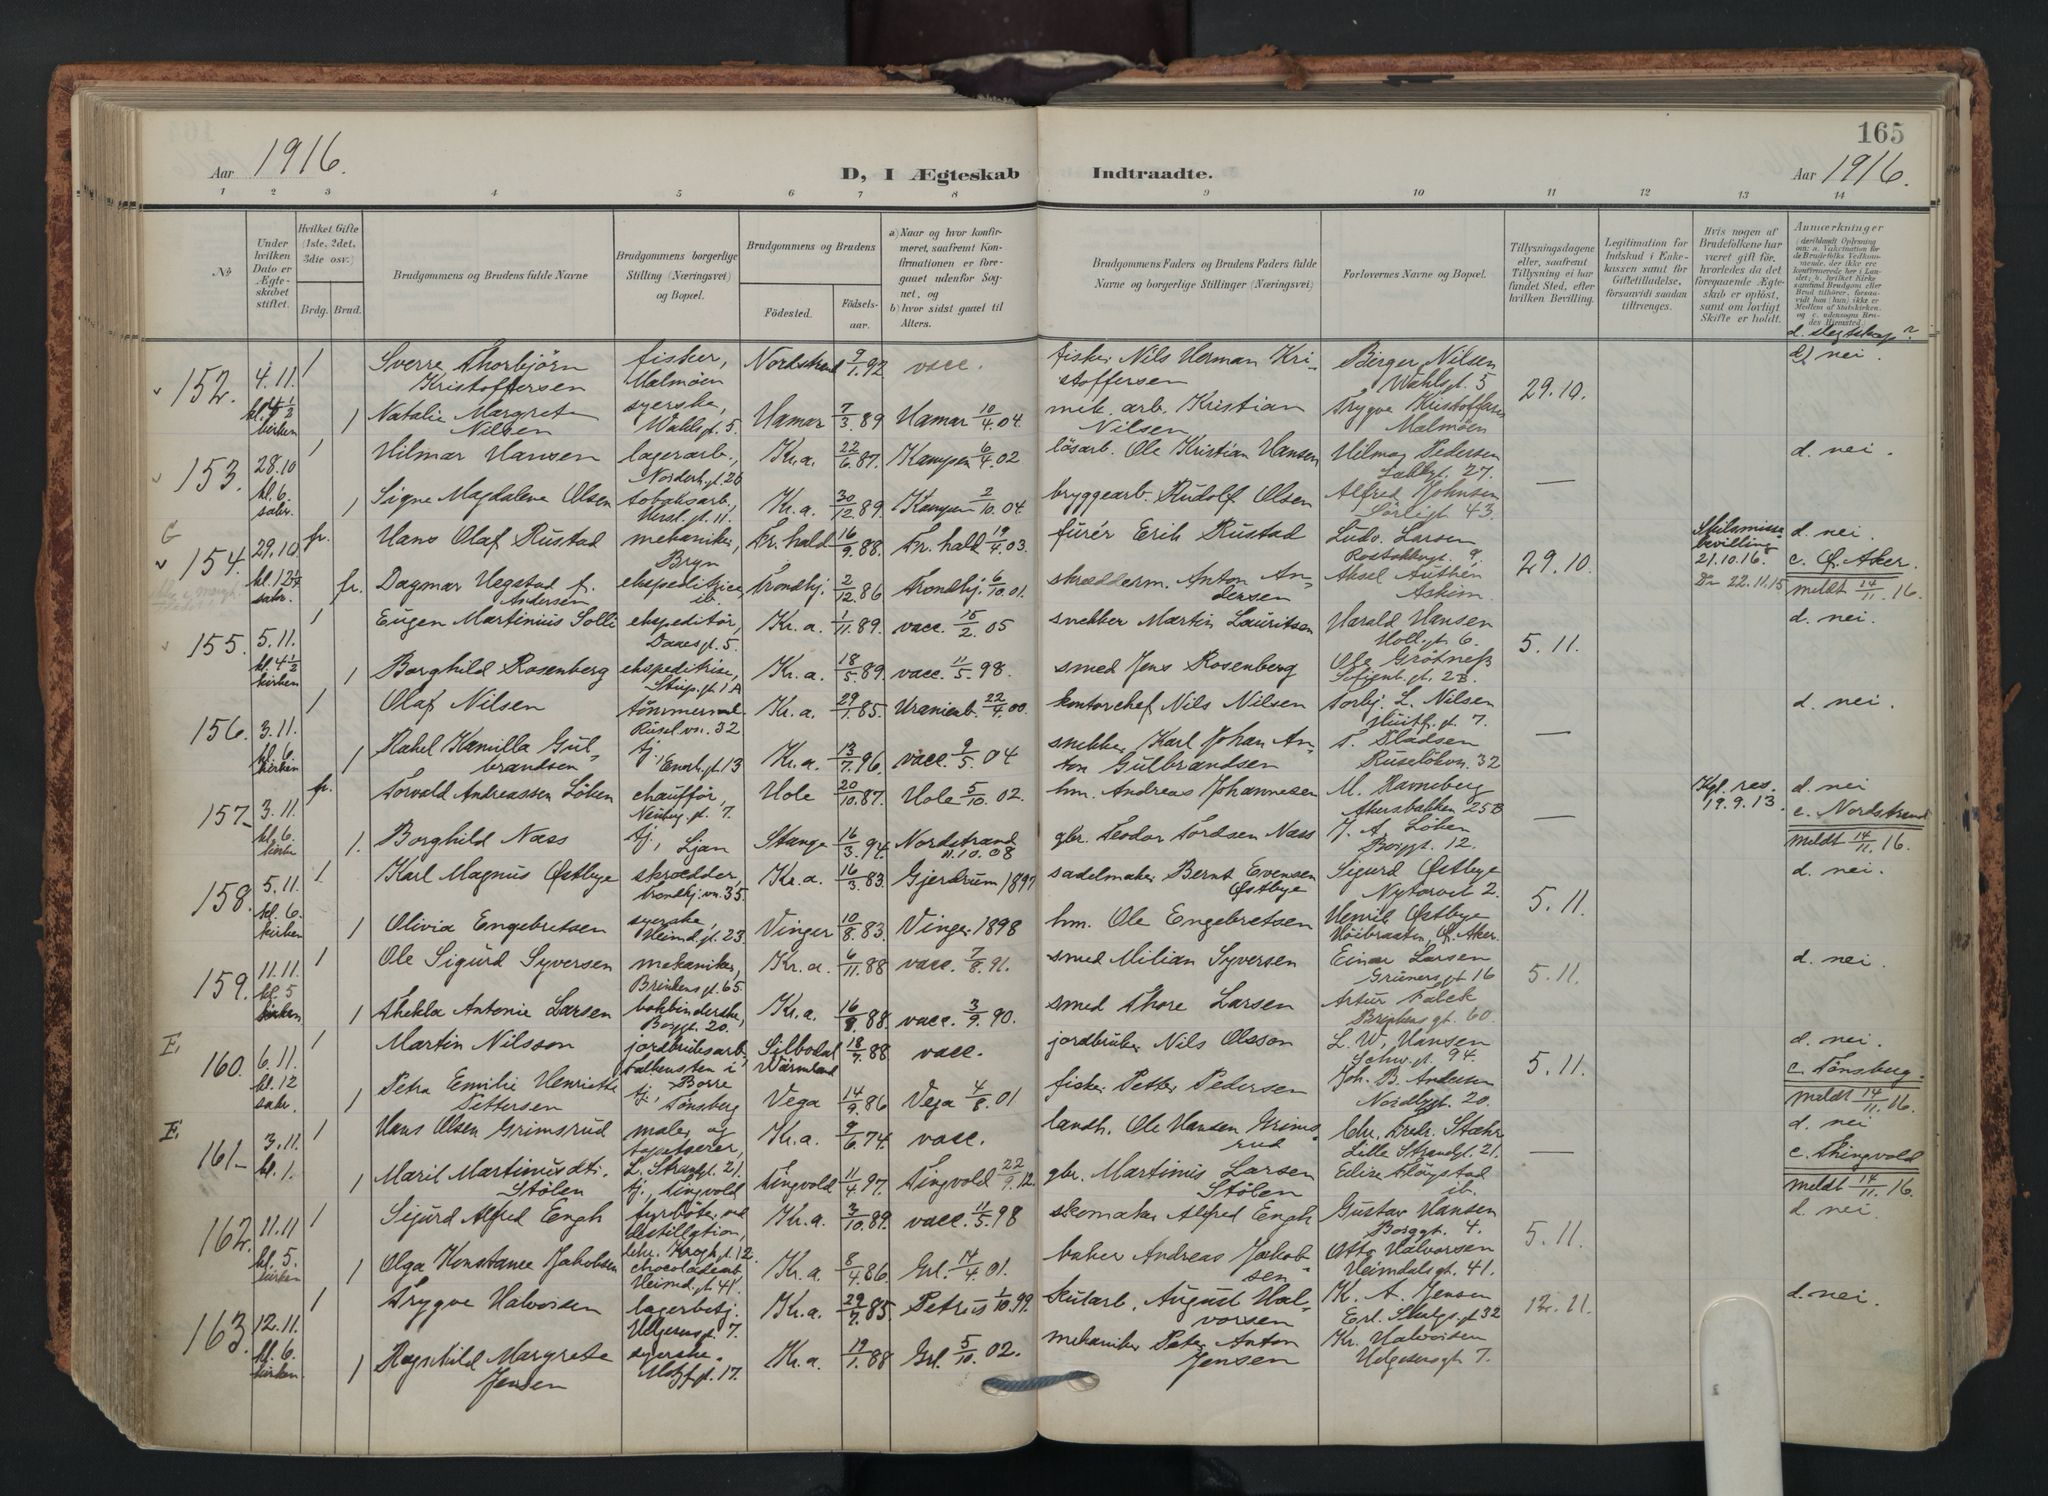 165
Aar 1916.
D, I Ægteskab Indtraadte.
Aar 1916.
1 2 3 4 5 6 7 8 9 10 11 12 13 14
No
Under hvilken Dato er Ægteskabet stiftet.
Hvilket Gifte (1ste, 2det, 3die osv.)
Brdg. Brud.
Brudgommens og Brudens fulde Navne
Brudgommens borgerlige Stilling (Næringsvei) og Bopæl.
Brudgommens og Brudens
Födested. Födselsaar.
a) Naar og hvor konfirmeret, saafremt Konfirmationen er foregaaet udenfor Sognet, og
b) hvor sidst gaaet til Alters.
Brudgommens Faders og Brudens Faders fulde Navne og borgerlige Stillinger (Næringsvei)
Forlovernes Navne og Bopæl.
Tillysningsdagene eller, saafremt Tillysning ei har fundet Sted, efter hvilken Bevilling.
Legitimation for Indskud i Enkekassen samt for Giftetilladelse, forsaavidt saadan tiltrænges.
Hvis nogen af Brudefolkene har været gift för, hvorledes da det foregaaende Ægteskab er oplöst, samt om lovligt Skifte er holdt.
Anmærkninger
d. slegtskap?
152. 4.11. kl. 4 1/2 kirken 1 Sverre Thorbjörn Kristoffersen fisker, Malmöen Nordstrand 9/1 92 vacc. fisker Nils Herman Kristoffersen Birger Nilsen Wahlsgt. 5 29.10. d) nei.
1 Natalie Margrete Nilsen syerske, Wahlsgt. 5. Hamar 7/3 89 Hamar 10/4 04. mek. arb. Kristian Nilsen Trygve Kristoffersen Malmöen
153. 28.10 kl. 6. sakr. 1 Hilmar Hansen lagerarb., Norderh. gt. 26 Kr.a. 22/6 87. Kampen 6/4 02 lösarb. Ole Kristian Hansen Hilmar Pedersen 27. — d. nei.
1 Signe Magdalene Olsen tobaksarb. 11. Kr.a. 30/12 89. Kampen 2/10 04 bryggearb. Rudolf Olsen Alfred Johnsen Sörligt 43.
G
154. 29.10 kl. 12 sakr. fr. Hans Olaf Rustad mekaniker, Bryn Fr. hald 16/9 88. Fr. hald 19/4 03. furér Erik Rustad Ludv. Larsen 29.10. Skilsmissebevilling 21.10.16. d. nei c. Ø. Aker.
fr. Dagmar Hegstad f. Andersen ekspeditrice ib. Trondhj. 2/12 86 Trondhj. 6/10 01. skrædderm. Anton Andersen Aksel Authén Askim. 22.11.15 meldt 14/11 16.
155. 5.11. kl. 4 1/2 kirken 1 Eugen Martinius Solli ekspeditör, Daaesgt. 5. Kr.a. 1/11 89. vacc. 15/2 05 snekker Martin Lauritsen Harald Hansen Holl. gt. 6. 5.11. d. nei.
1 Borghild Rosenberg ekspeditrise, Stup. gt. 1A Kr.a. 18/5 89. vacc. 11/5 98. smed Jens Rosenberg Ole Grötness Sofienb. gt. 2B.
156. 3.11. kl. 6. kirken 1 Olaf Nilsen Rusel vn. 32 Kr.a. 29/1 85. Uranienb. 22/4 00. kontorchef Nils Nilsen Torbj. L. Nilsen Huitf. gt. 7. — d. nei.
1 Rakel Kamilla Gulbrandsen tj., Eneb. gt. 13 Kr.a. 13/7 96. vacc. 9/5 04 snekker Karl Johan Anton Gulbrandsen T. Pladsen Ruselökvn. 32
157. 3.11. kl. 6. kirken fr. Torvald Andreassen Löken chauffør, Neuberg. gt. 7. Hole 20/10 87. Hole 5/10 02. hm. Andreas Johannesen M. Ravneberg Akersbakken 25B — Kgl. res. 19.9.13. d. nei c. Nordstrand
1. Borghild Næss tj., Ljan Stange 16/3 94. Nordstrand 11.10.08 gbr. Teodor Tordsen Næss J. A. Löken Borggt. 12. meldt 14/11 16.
158. 5.11. kl. 6. kirken 1 Karl Magnus Østbye skrædder, Trondhj. vn. 35. Kr.a. 16/3 83. Gjerdrum 1897 sadelmaker Bernt Evensen Østbye Sigurd Østbye Nytorvet 2. 5.11. d. nei.
1 Olivia Engebretsen syerske, Heimd. gt. 23. Vinger 10/8 83. Vinger 1898 hm. Ole Engebretsen Henrik Østbye Höibraaten, Ø. Aker.
159. 11.11. kl. 5 kirken 1 Ole Sigurd Syversen mekaniker, Brinkens gt. 65 Kr.a. 6/11 88 vacc. 7/8 91. smed Milian Syversen Einar Larsen Grünersgt. 16 5.11. d. nei.
1 Thekla Antonie Larsen bokbinderske, Borggt. 20. Kr.a. 16/8 88 vacc. 3/9 90. smed Thore Larsen Artur Falck Brinkens gt. 60.
E.
160. 6.11. kl. 12 sakr. 1 Martin Nilsson jordbruksarb. Falkensten i Borre Silbodal Värmland 18/7 88 vacc. jordbruker Nils Olsson L. W. Hansen Schw. gt. 94. 5.11. d. nei. c. Tönsberg.
1 Petra Emilie Henriette Pettersen tj., Tönsberg Vega 14/9 86 Vega 4/8 01 fisker Petter Pedersen Joh. B. Andersen Nordbygt. 20. meldt 14/11 16.
E.
161. 3.11. kl. 1. 1 Hans Olsen Grimsrud maler og tapetserer, L. Strandgt. 21. Kr.a. 9/6 74. vacc. landh. Ole Hansen Grimsrud Chr. Fredr. Stæhr Lille Strandgt. 21. — d. nei c. Thingvold
1 Maril Martinusdtr. Stölen tj., Tingvold Tingvold 11/4 97. Tingvold 22/9 12. gbr. Martinus Larsen Stölen Edize Flöystad ib. meldt 14/11 16.
162. 11.11 kl. 5. kirken 1 Sigurd Alfred Engh fyrböter ved destillation, Chr. Krogh gt. 12. Kr.a. 3/10 89. vacc. 11/5 98 skomaker Alfred Engh Gustav Hansen Borggt. 4. 5.11. d. nei.
1 Olga Konstance Jakobsen chocoladearb. Heimd. gt. 41. Kr.a. 8/4 86. Grl. 14/4 01. baker Andreas Jakobsen Otto Halvorsen Heimdalsgt. 41.
163. 12.11. kl. 6. kirken 1 Trygve Halvorsen lagerbetj. Helgesens gt. 7. Kr.a. 29/7 85. Petrus 1/10 99. skutarb. August Halvorsen K. A. Jensen Erl. Skalgs. gt 32 12.11. d. nei.
1 Ragnhild Margrete Jensen syerske. Motzf. gt. 17. Kr.a. 19/1 88 Grl. 5/10 02. mekaniker Peter Anton Jensen Kr. Halvorsen Helgesensgt. 7.